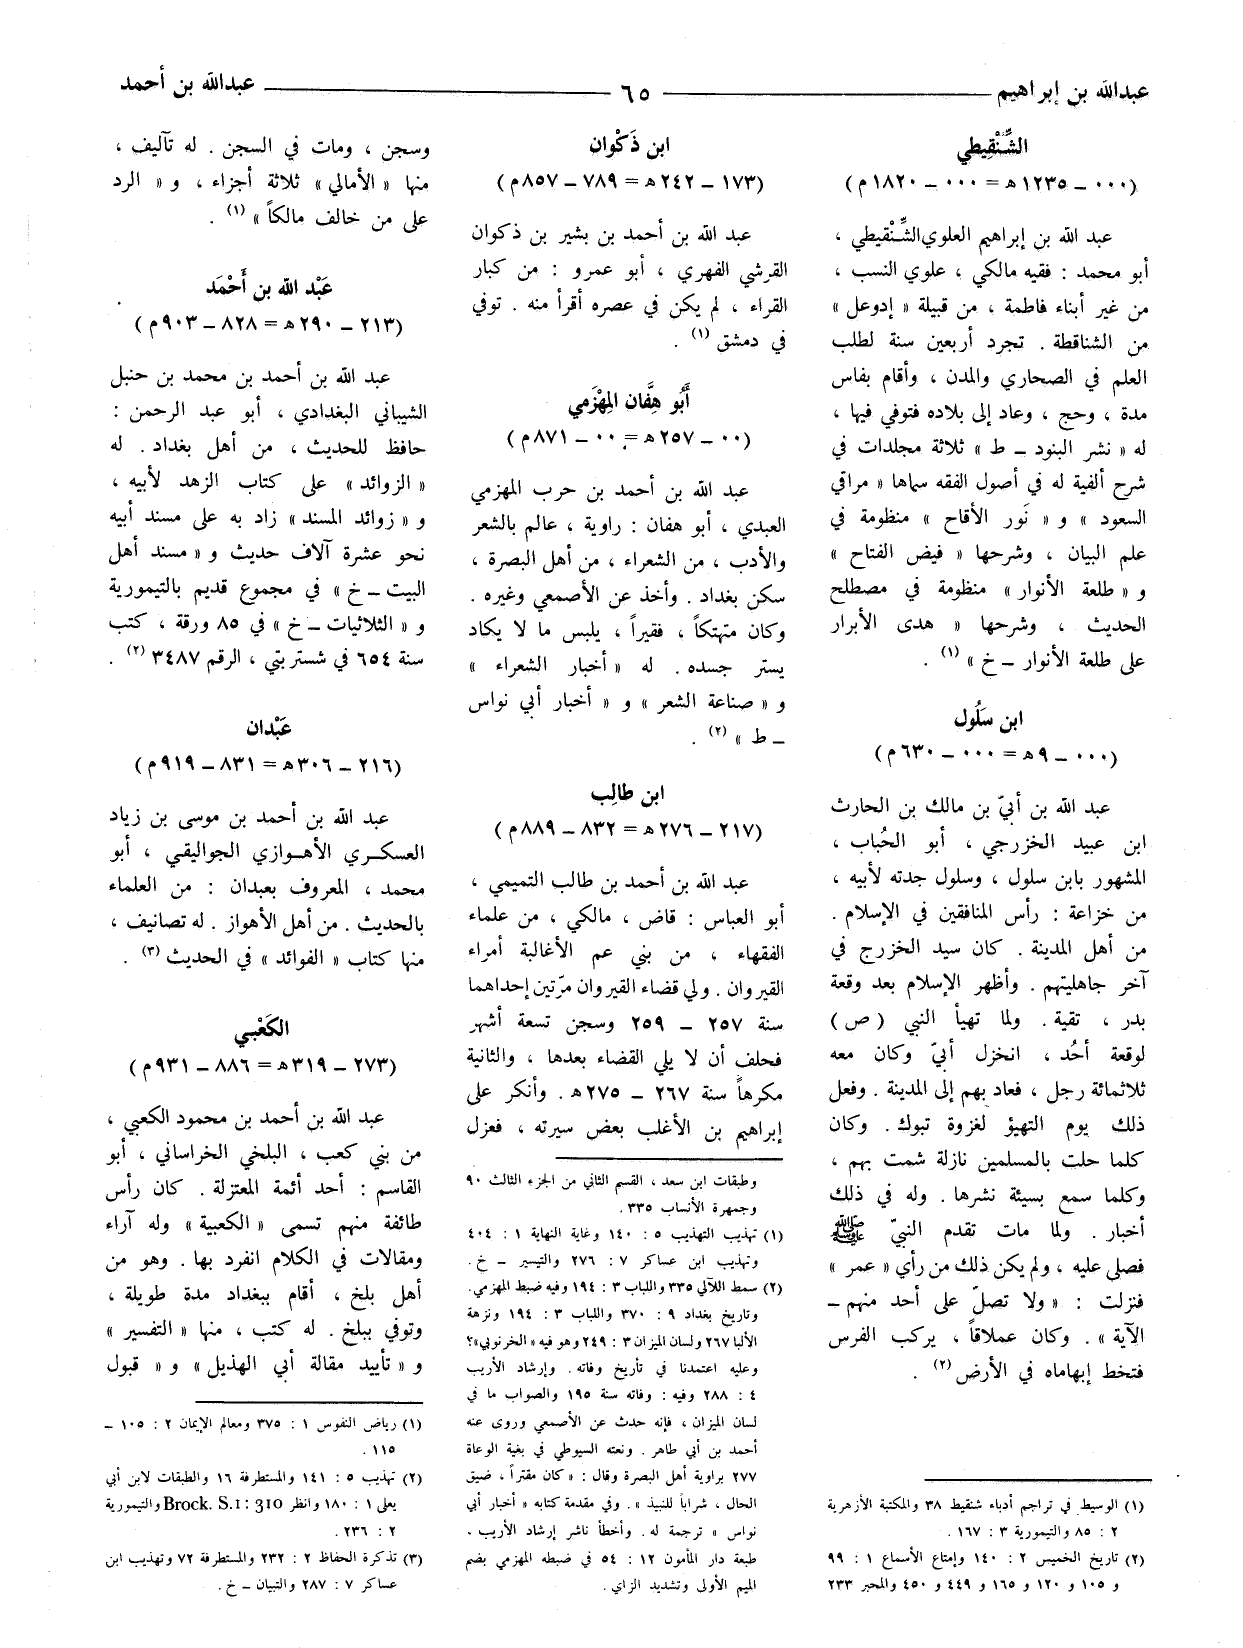 عبدالله بن إبراهيم ٦٥ عبدالله بن أحمد
الشِّنْقِيطي
(٠٠٠ ــ ١٢٣٥ هـ = ٠٠٠ ــ ١٨٢٠ م)
عبد الله بن إبراهيم العلوي الشِّنْقيطي ،
أبو محمد : فقيه مالكي ، علوي النسب ،
من غير أبناء فاطمة ، من قبيلة « إدوعل »
من الشناقطة . تجرد أربعين سنة لطلب
العلم في الصحاري والمدن ، وأقام بفاس
مدة ، وحج ، وعاد إلى بلاده فتوفي فيها ،
له « نشر البنود ــ ط » ثلاثة مجلدات في
شرح ألفية له في أصول الفقه سماها « مراقي
السعود » و « نَور الأقاح » منظومة في
علم البيان ، وشرحها « فيض الفتاح »
و « طلعة الأنوار » منظومة في مصطلح
الحديث ، وشرحها « هدى الأبرار
على طلعة الأنوار ــ خ » (١) .
ابن سَلُول
(٠٠٠ ــ ٩ هـ = ٠٠٠ ــ ٦٣٠ م)
عبد الله بن أبيّ بن مالك بن الحارث
ابن عبيد الخزرجي ، أبو الحُباب ،
المشهور بابن سلول ، وسلول جدته لأبيه ،
من خزاعة : رأس المنافقين في الإسلام .
من أهل المدينة . كان سيد الخزرج في
آخر جاهليتهم . وأظهر الإسلام بعد وقعة
بدر ، تقية . ولما تهيأ النبي (ص)
لوقعة أُحُد ، انخزل أبيّ وكان معه
ثلاثمائة رجل ، فعاد بهم إلى المدينة . وفعل
ذلك يوم التهيؤ لغزوة تبوك . وكان
كلما حلت بالمسلمين نازلة شمت بهم ،
وكلما سمع بسيئة نشرها . وله في ذلك
أخبار . ولما مات تقدم النبيّ ﷺ
فصلى عليه ، ولم يكن ذلك من رأي « عمر »
فنزلت : « ولا تصلّ على أحد منهم ــ
الآية » . وكان عملاقاً ، يركب الفرس
فتخط إبهاماه في الأرض (٢) .
(١) الوسيط في تراجم أدباء شنقيط ٣٨ والمكتبة الأزهرية
٢ : ٨٥ والتيمورية ٣ : ١٦٧ .
(٢) تاريخ الخميس ٢ : ١٤٠ وإمتاع الأسماع ١ : ٩٩
و ١٠٥ و ١٢٠ و ١٦٥ و ٤٤٩ و ٤٥٠ والمحبر ٢٣٣
ابن ذَكْوان
(١٧٣ ــ ٢٤٢ هـ = ٧٨٩ ــ ٨٥٧ م)
عبد الله بن أحمد بن بشير بن ذكوان
القرشي الفهري ، أبو عمرو : من كبار
القراء ، لم يكن في عصره أقرأ منه . توفي
في دمشق (١) .
أَبُو هِفَّان المِهْزَمي
(٠٠ ــ ٢٥٧ هـ = ٠٠ ــ ٨٧١ م)
عبد الله بن أحمد بن حرب المهزمي
العبدي ، أبو هفان : راوية ، عالم بالشعر
والأدب ، من الشعراء ، من أهل البصرة ،
سكن بغداد . وأخذ عن الأصمعي وغيره .
وكان متهتكاً ، فقيراً ، يلبس ما لا يكاد
يستر جسده . له « أخبار الشعراء »
و « صناعة الشعر » و « أخبار أبي نواس
ــ ط » (٢) .
ابن طالِب
(٢١٧ ــ ٢٧٦ هـ = ٨٣٢ ــ ٨٨٩ م)
عبد الله بن أحمد بن طالب التميمي ،
أبو العباس : قاض ، مالكي ، من علماء
الفقهاء ، من بني عم الأغالبة أمراء
القيروان . ولي قضاء القيروان مرّتين إحداهما
سنة ٢٥٧ ــ ٢٥٩ وسجن تسعة أشهر
فحلف أن لا يلي القضاء بعدها ، والثانية
مكرهاً سنة ٢٦٧ ــ ٢٧٥ هـ . وأنكر على
إبراهيم بن الأغلب بعض سيرته ، فعزل
وطبقات ابن سعد ، القسم الثاني من الجزء الثالث ٩٠
وجمهرة الأنساب ٣٣٥ .
(١) تهذيب التهذيب ٥ : ١٤٠ وغاية النهاية ١ : ٤٠٤
وتهذيب ابن عساكر ٧ : ٢٧٦ والتيسير ــ خ .
(٢) سمط اللآلي ٣٣٥ واللباب ٣ : ١٩٤ وفيه ضبط المهزمي .
وتاريخ بغداد ٩ : ٣٧٠ واللباب ٣ : ١٩٤ ونزهة
الألبا ٢٦٧ ولسان الميزان ٣ : ٢٤٩ وهو فيه « الخرنوبي » ؟
وعليه اعتمدنا في تأريخ وفاته . وإرشاد الأريب
٤ : ٢٨٨ وفيه : وفاته سنة ١٩٥ والصواب ما في
لسان الميزان ، فإنه حدث عن الأصمعي وروى عنه
أحمد بن أبي طاهر . ونعته السيوطي في بغية الوعاة
٢٧٧ براوية أهل البصرة وقال : « كان مقتراً ، ضيق
الحال ، شراباً للنبيذ » . وفي مقدمة كتابه « أخبار أبي
نواس » ترجمة له . وأخطأ ناشر إرشاد الأريب ،
طبعة دار المأمون ١٢ : ٥٤ في ضبطه المهزمي بضم
الميم الأولى وتشديد الزاي .
وسجن ، ومات في السجن . له تآليف ،
منها « الأمالي » ثلاثة أجزاء ، و « الرد
على من خالف مالكاً » (١) .
عَبْد الله بن أَحْمَد
(٢١٣ ــ ٢٩٠ هـ = ٨٢٨ ــ ٩٠٣ م)
عبد الله بن أحمد بن محمد بن حنبل
الشيباني البغدادي ، أبو عبد الرحمن :
حافظ للحديث ، من أهل بغداد . له
« الزوائد » على كتاب الزهد لأبيه ،
و « زوائد المسند » زاد به على مسند أبيه
نحو عشرة آلاف حديث و « مسند أهل
البيت ــ خ » في مجموع قديم بالتيمورية
و « الثلاثيات ــ خ » في ٨٥ ورقة ، كتب
سنة ٦٥٤ في شستربتي ، الرقم ٣٤٨٧ (٢) .
عَبْدان
(٢١٦ ــ ٣٠٦ هـ = ٨٣١ ــ ٩١٩ م)
عبد الله بن أحمد بن موسى بن زياد
العسكري الأهوازي الجواليقي ، أبو
محمد ، المعروف بعبدان : من العلماء
بالحديث . من أهل الأهواز . له تصانيف ،
منها كتاب « الفوائد » في الحديث (٣) .
الكَعْبي
(٢٧٣ ــ ٣١٩ هـ = ٨٨٦ ــ ٩٣١ م)
عبد الله بن أحمد بن محمود الكعبي ،
من بني كعب ، البلخي الخراساني ، أبو
القاسم : أحد أئمة المعتزلة . كان رأس
طائفة منهم تسمى « الكعبية » وله آراء
ومقالات في الكلام انفرد بها . وهو من
أهل بلخ ، أقام ببغداد مدة طويلة ،
وتوفي ببلخ . له كتب ، منها « التفسير »
و « تأييد مقالة أبي الهذيل » و « قبول
(١) رياض النفوس ١ : ٣٧٥ ومعالم الإيمان ٢ : ١٠٥ ــ
١١٥ .
(٢) تهذيب ٥ : ١٤١ والمستطرفة ١٦ والطبقات لابن أبي
يعلى ١ : ١٨٠ وانظر Brock. S.1 : 310 والتيمورية
٢ : ٢٣٦ .
(٣) تذكرة الحفاظ ٢ : ٢٣٢ والمستطرفة ٧٢ وتهذيب ابن
عساكر ٧ : ٢٨٧ والتبيان ــ خ .